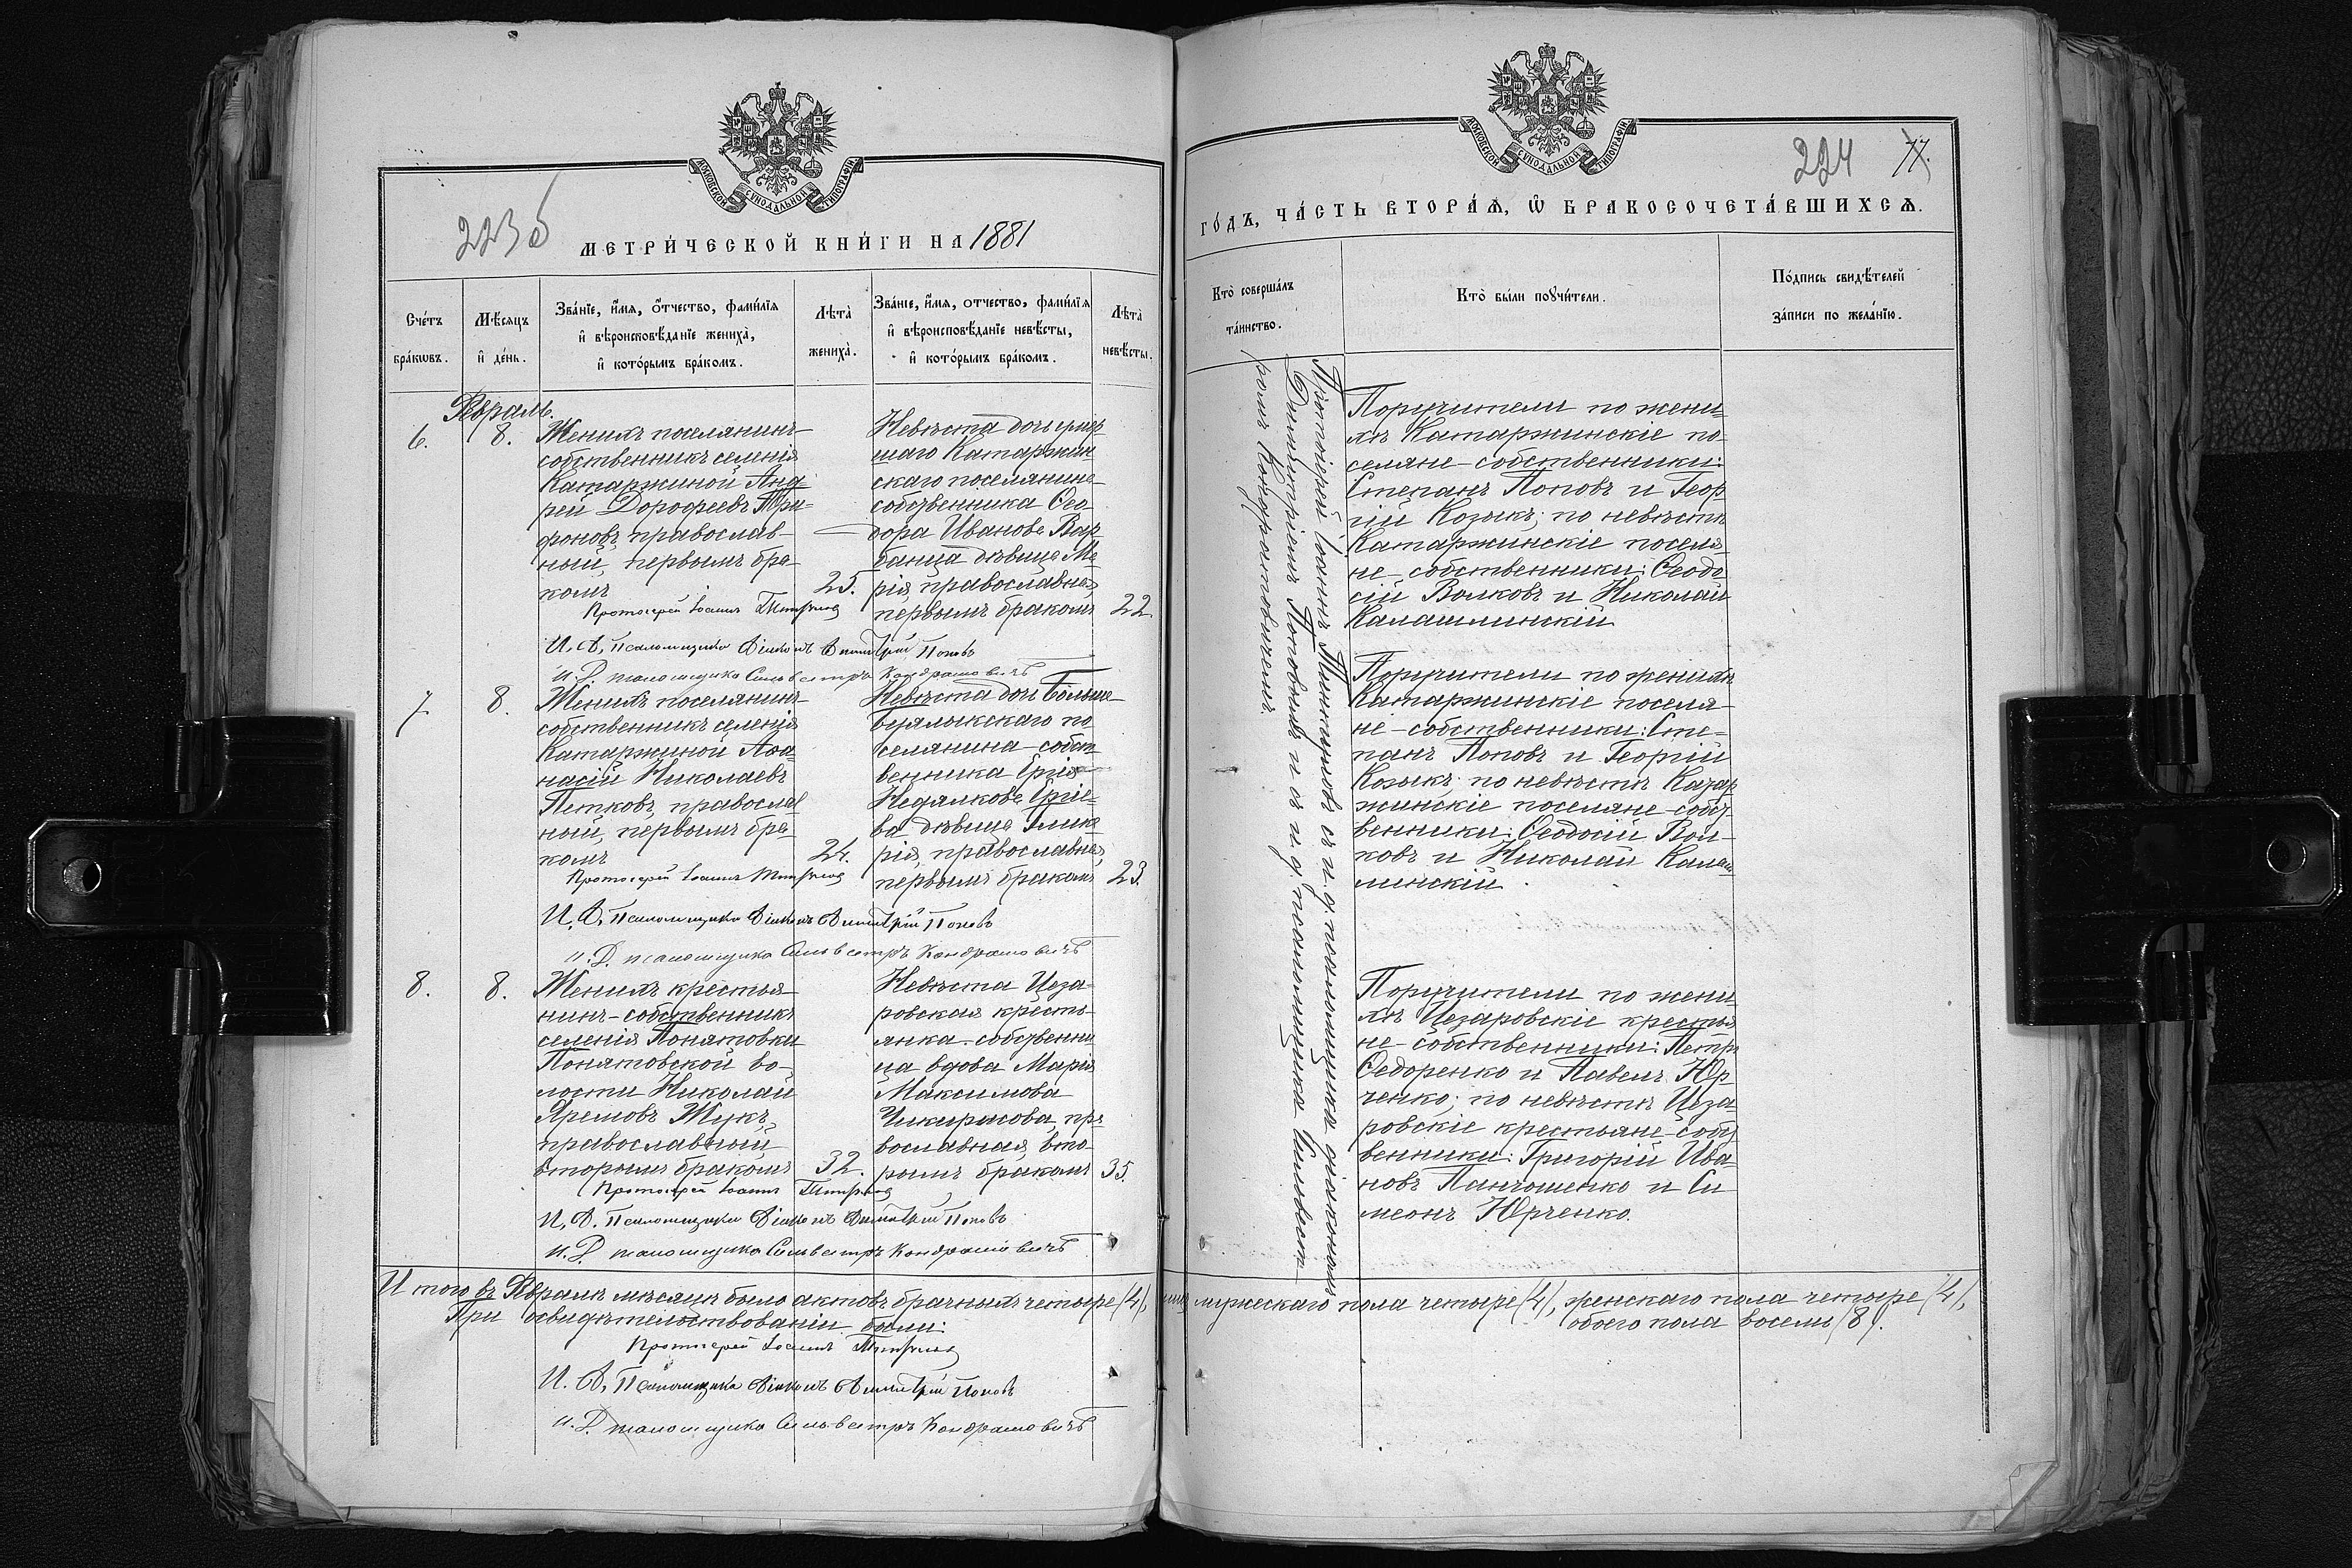 МОСКОВСКОЙ СѴНОДАЛЬНОЙ ТИПОГРАФІИ
223 б
МЕТРИ́ЧЕСКОЙ КНИ́ГИ НА 1881
Сче́тъ бра́ковъ.
Мѣ́сяцъ и҆ де́нь.
Зва́нїе, и҆́мя, ѻ҆́тчество, фами́лїя и҆ вѣроисповѣ́данїе жениха̀, и҆ кото́рымъ бра́комъ.
Лѣта̀ жениха̀.
Зва́нїе, и҆́мя, отчество, фами́лїя и҆ вѣроисповѣ́данїе невѣ́сты, и҆ кото́рымъ бра́комъ.
Лѣта̀ невѣ́сты.
Февраль.
6.
8.
Женихъ поселянинъ-
собственникъ селенія
Катаржиной Анд
рей Дорофеевъ Три=
фоновъ, православ-
ный, первымъ бра-
комъ
25.
Невѣста дочь умер
шаго Катаржин
скаго поселянина-
собственника Ѳео
дора Иванова Вар
банца дѣвица Ма
рія, православная,
первымъ бракомъ
22.
Протоіерей Іоаннъ
И. Д. Псаломщика Діаконъ Димитрій Поповъ
И. Д. псаломщика Сильвестръ Кондратовичъ
7.
8.
Женихъ поселянинъ-
собственникъ селенія
Катаржиной Аѳа-
насій Николаевъ
Петковъ, православ
ный, первымъ бра
комъ
24.
Невѣста дочь Больше-
буялыкскаго по
селянина-собст
венника
Недялкова
ва дѣвица Глике
рія, православная,
первымъ бракомъ
23.
Протоіерей Іоаннъ
И. Д. Псаломщика Діаконъ Димитрій Поповъ
И. Д. псаломщика Сильвестръ Кондратовичъ
8.
8.
Женихъ крестья-
нинъ-собственникъ
селенія Понятовки
Понятовской во-
лости Николай
Яремовъ Жукъ,
православный,
вторымъ бракомъ
32.
Невѣста Цеза-
ровская кресть-
янка-собственни
ца вдова Марія
Максимова
пра
вославная, вто
рымъ бракомъ
35.
Протоіерей Іоаннъ
И. Д. Псаломщика Діаконъ Димитрій Поповъ
И. Д. псаломщика Сильвестръ Кондратовичъ
Итого въ Февралѣ мѣсяцѣ было актовъ брачныхъ четыре (4),
При освидѣтельствованіи были:
Протоіерей Іоаннъ
И. Д. Псаломщика Діаконъ Димитрій Поповъ
И. Д. псаломщика Сильвестръ Кондратовичъ
МОСКОВСКОЙ СѴНОДАЛЬНОЙ ТИПОГРАФІИ
224 77.
ГО́ДЪ, ЧА́СТЬ ВТОРА́Ѧ, Ѡ҆ БРАКОСОЧЕТА́ВШИХСѦ.
Кто̀ соверша́лъ та́инство.
Кто̀ бы́ли поручи́тели.
По́дпись свидѣ́телей за́писи по жела́нїю.
Протоіерей Іоаннъ съ и. д. псаломщика діакономъ
Димитріемъ Поповымъ и съ и. д. псаломщика Сильвест-
ромъ Кондратовичемъ.
Поручители по жени=
хѣ Катаржинскіе по-
селяне-собственники:
Степанъ Поповъ и Геор
гій Козыкъ; по невѣстѣ
Катаржинскіе поселя
не-собственники: Ѳеодо
сій Волковъ и Николай
Калашлинскій.
Поручители по женихѣ
Катаржинскіе поселя-
не-собственники: Сте=
панъ Поповъ и Георгій
Козыкъ; по невѣстѣ Катар
жинскіе поселяне-собст
венники: Ѳеодосій Вол-
ковъ и Николай Калаш
линскій.
Поручители по жени
хѣ Цезаровскіе крестья
не-собственники: Петръ
Ѳедоренко и Павелъ Юр
ченко; по невѣстѣ Цеза-
ровскіе крестьяне-собст
венники: Григорій Ива-
новъ Панчошенко и Си
меонъ Юрченко.
мужескаго пола четыре (4), женскаго пола четыре (4),
обоего пола восемь (8).